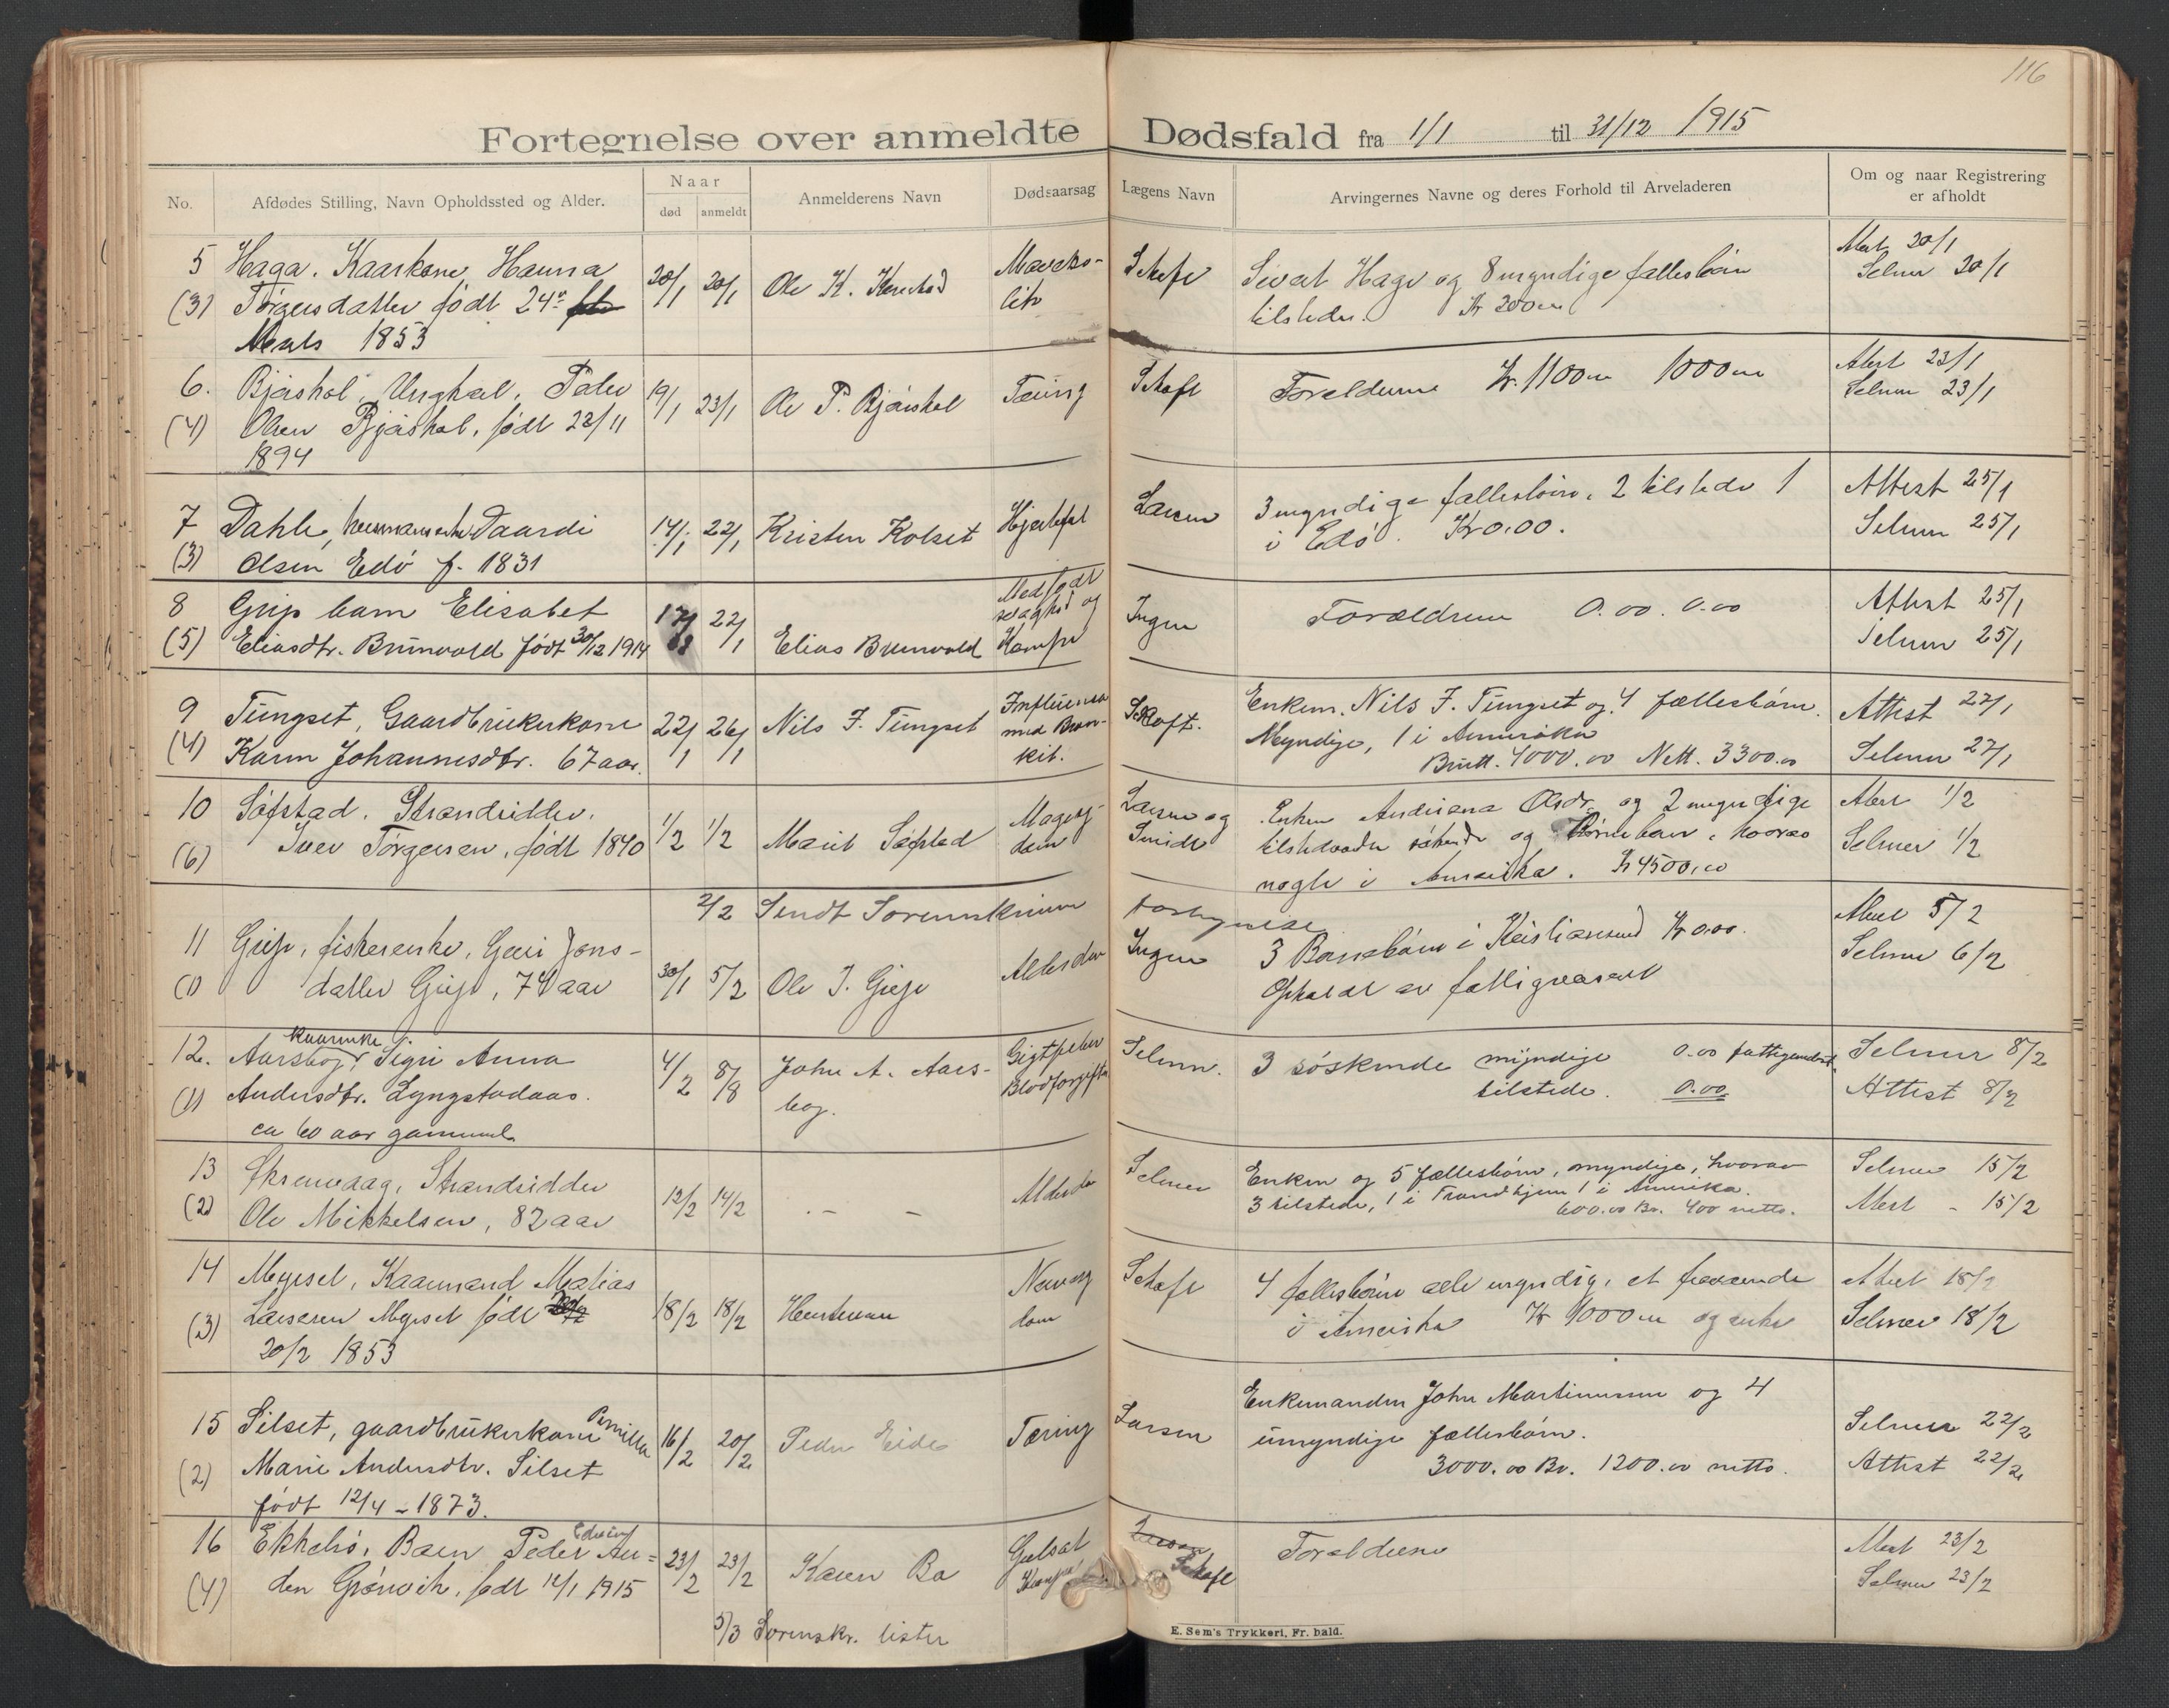 116
Fortegnelse over anmeldte Dødsfald fra 1/1 til 31/12 1915
No.
Afdødes Stilling, Navn Opholdssted og Alder.
Naar
død
anmeldt
Anmelderens Navn
Dødsaarsag
Lægens Navn
Arvingernes Navne og deres Forhold til Arveladeren
Om og naar Registrering
er afholdt
5 Haga. Kaarkone Hanna 20/1 20/1 Ole K. Skaft Sivert Haga og 8 myndige fællesbørn
(3) Torgersdatter født 24de tilstede. Kr 200
1853
20/1
Selmer 20/1
6. Bjørshol, Ungkarl, Peder 19/1 23/1 Ole P. Bjørshol Tæring Skaft Forældrene Kr. 1100 1000
(4) Olsen Bjørshol, født 23/11
1894
Attest 23/1
Selmer 23/1
7 Dahle, Taardi 14/1 22/1 Kristen Kolset Larsen 3 myndige fællesbørn, 2 tilstede 1
(3) Olsen Edø f. 1831 i Edø. Kr 0.00.
Attest 25/1
Selmer 25/1
8 Grip barn Elisabet 22/1 Elias Brunvold Medfødt
svaghed og
Krampe
Ingen Forældrene 0.00. 0.00
(5) Eliasdtr. Brunvold født 30/12 1914
Attest 25/1
Selmer 25/1
9 Tungset, Gaardbrukerkone 22/1 26/1 Nils J. Tungset Influensa
med Bron-
kit.
Skaft. Enkem. Nils J. Tungset og 4 fællesbørn.
(4) Karen Johannesdtr. 67 aar. Myndige, 1 i Amerika
Brutt. 4000.00 Nett. 3300.00
Attest 27/1
Selmer 27/1
10 Søfstad. Strandsidder. 1/2 1/2 Marit Søfstad Larsen og Enken Andriana Olsdr. og 2 myndige
(6) Iver Torgersen, født 1840 tilstedværende søskende og børnebørn, hvorav
nogle i Amerika. Kr 4500.00
Attest 1/2
Selmer 1/2
2/2 Sendt Sorenskriveren fortegnelse
11 Grip, fiskerenke, Guri Jons- 30/1 5/2 Ole J. Grip Alderdom Ingen 3 Barnebørn i Kristiansund Kr 0.00.
(1) datter Grip, 74 aar Opholdt av fattigvæsenet
Attest 5/2
Selmer 6/2
12. Aarsbog, Kaarenke Sigri Anna 4/2 8/8 John A. Aars-
bog.
Gigtfeber
Blodforgiftn
Selmer. 3 søskende myndige 0.00
(1) Andersdtr. Lyngstadaas. tilstede. 0.00
ca 60 aar gammel.
Selmer 8/2
Attest 8/2
13 Skrenvaag, Strandsidder 12/2 14/2 – – Alderdom Selmer Enken og 5 fællesbørn, myndige, hvorav
(2) Ole Mikkelsen, 82 aar 3 tilstede, 1 i Trondhjem 1 i Amerika.
600.00 Br. 400 netto.
Selmer 15/2
Attest - 15/2
14 Kaarmand Matias 18/2 18/2 Skaft 4 fællesbørn alle myndig, et fraværende
(3) Larsen født i Amerika Kr 1000 og enke
20/2 1853
Attest 18/2
Selmer 18/2
15 Silset, gaardbrukerkone Pernilla 16/2 20/2 Peder Eide Tæring Larsen Enkemanden John Martinussen og 4
(2) Marie Andersdtr. Silset umyndige fællesbørn.
født 12/4 - 1873. 3000.00 Br. 1200.00 netto.
Selmer 22/2
Attest 22/2
16 Barn Peder Edvin 23/2 23/2 Karen Bo Gulsot
Krampe
Larsen
Skaft
Forældrene
(4) Grønvik, født 1915
Attest 23/2
Selmer 23/2
5/3 Sorenskr. lister
E. Sem's Trykkeri, Fr. hald.